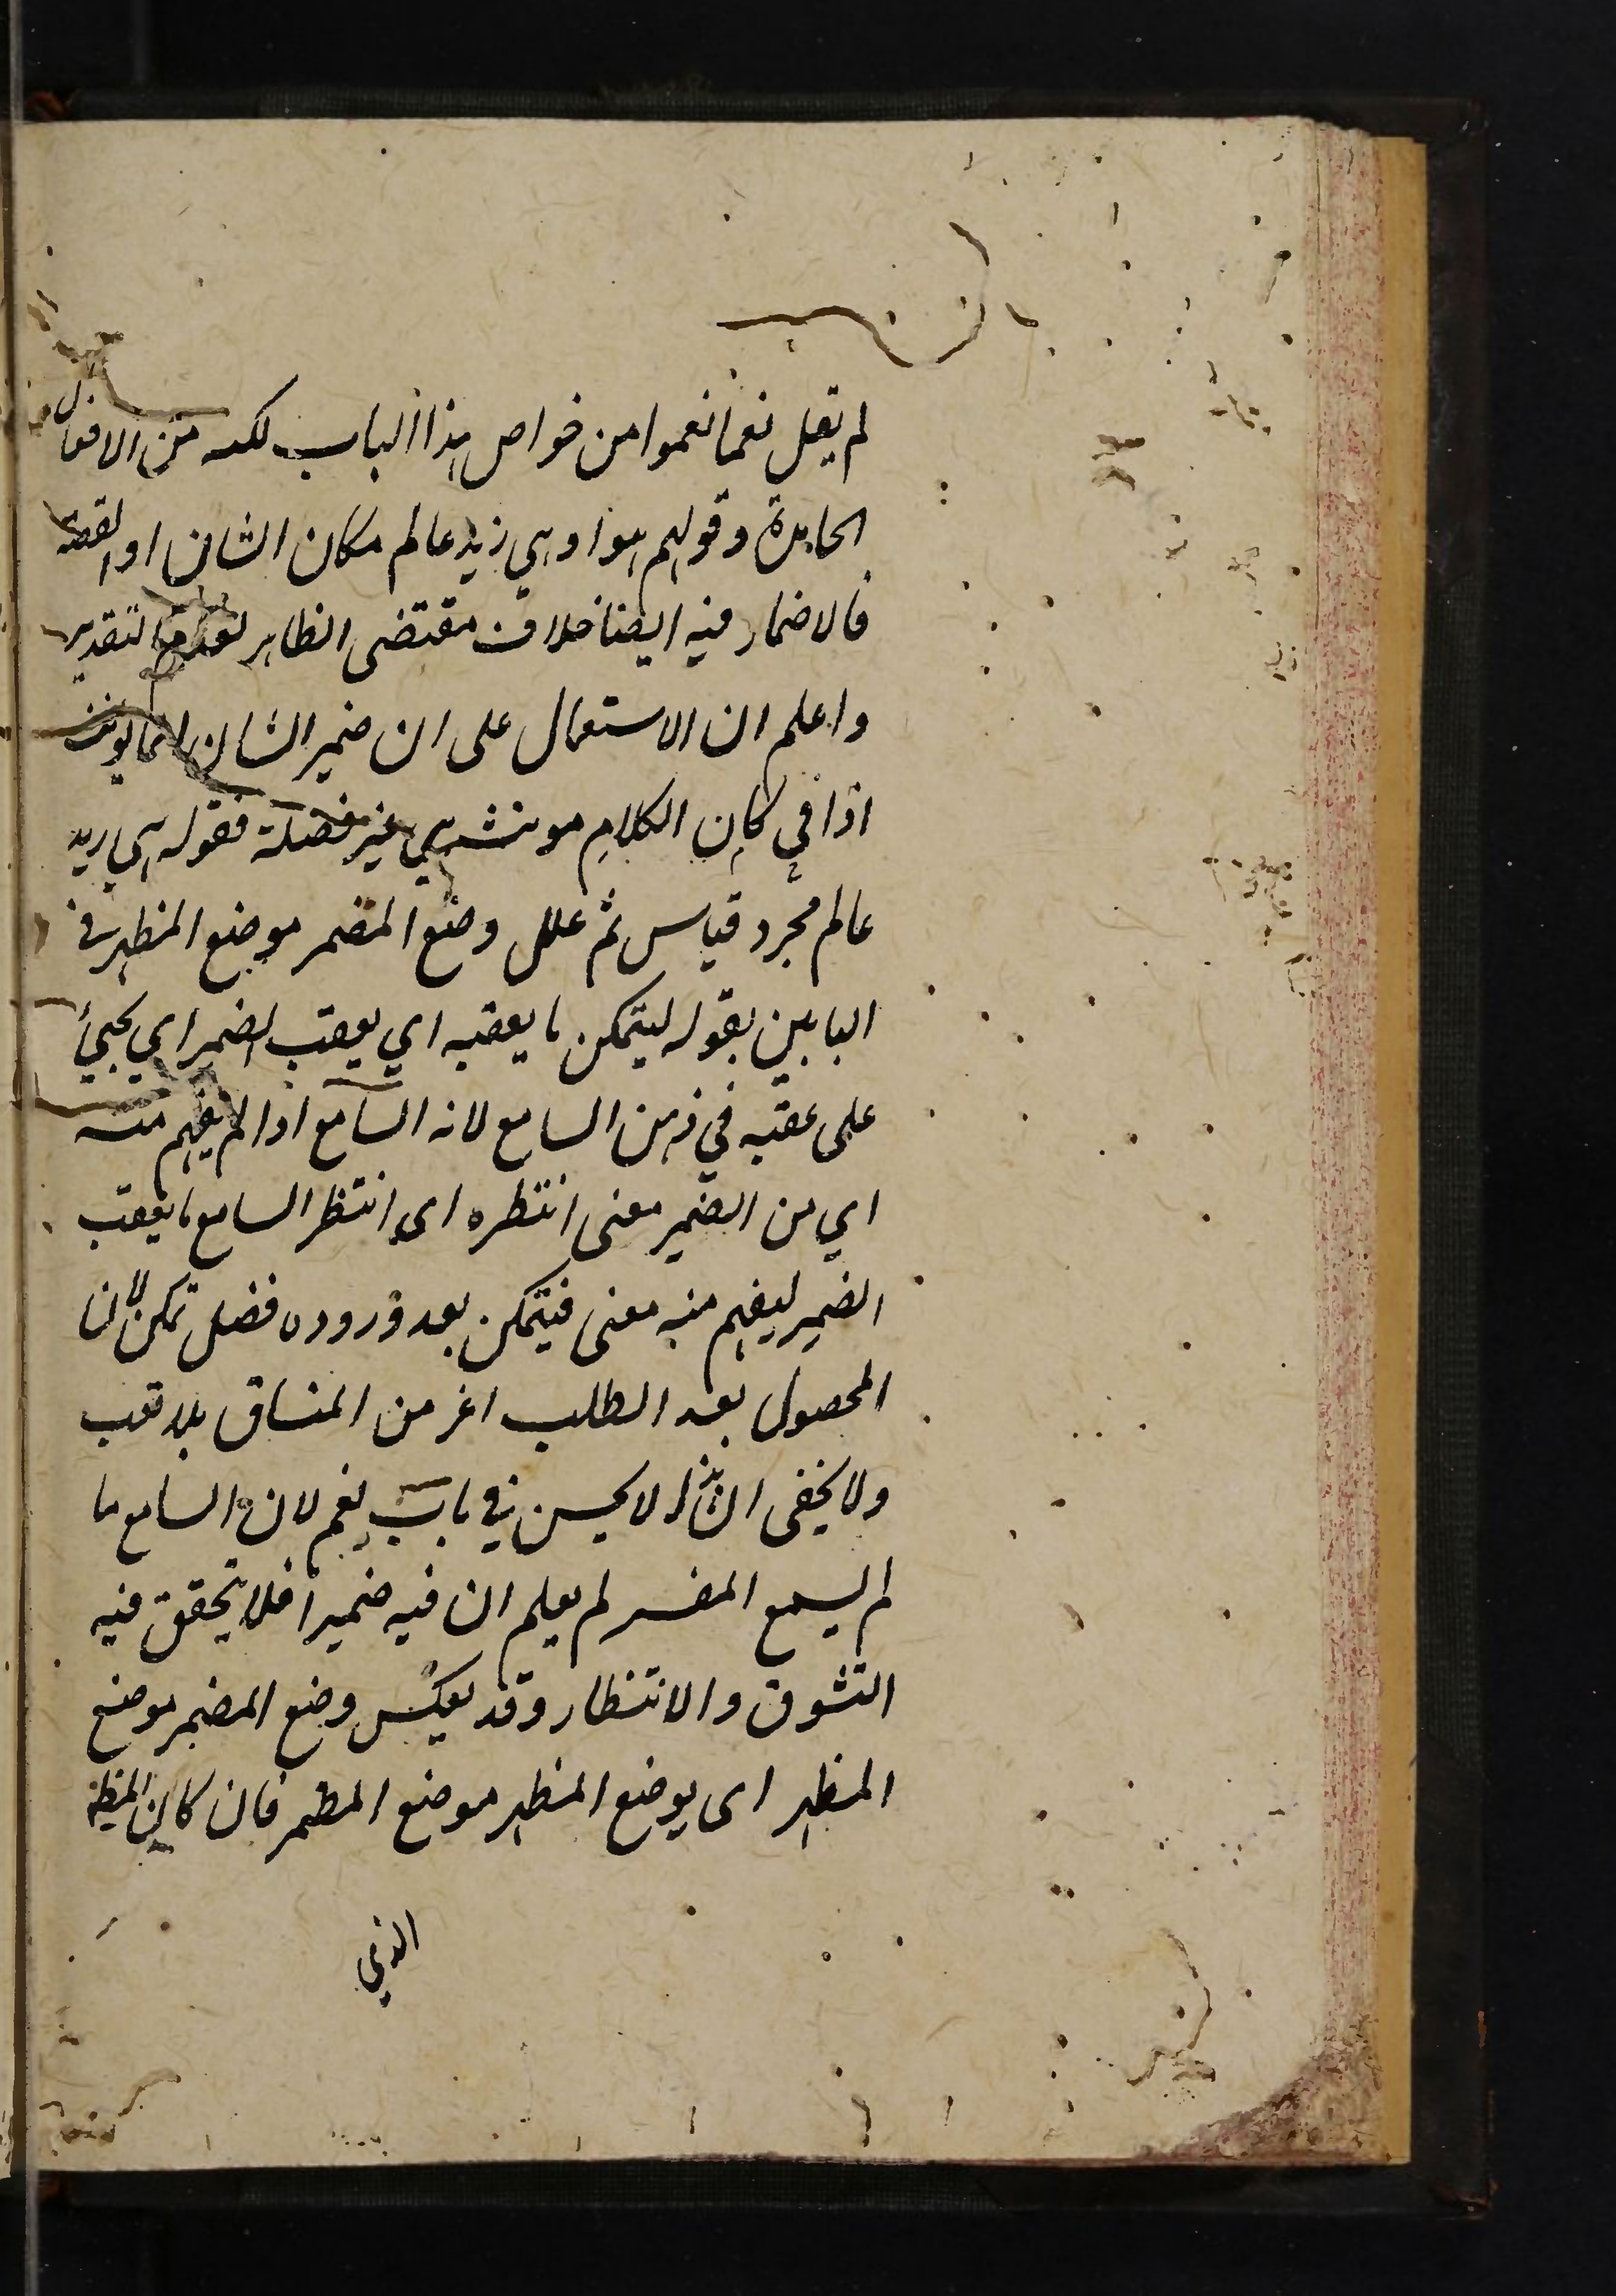 لم يقل نعما نعموا من خواص هذا الباب لكنه من الافعال
الجامدة وقولهم هو او هي زيد عالم مكان الشان او القصة
فالاضمار فيه ايضا خلاف مقتضى الظاهر لعدم التقدير
واعلم ان الاستعمال على ان ضمير الشان انما يؤنث
اذا في كان الكلام مونث هي غير فضلة فقوله هي زيد
عالم مجرد قياس ثم علل وضع المضمر موضع المظهر في
البابين بقوله ليتمكن ما يعقبه اي يعقب الضمير اي يجيئ
على عقبه في ذهن السامع لانه السامع اذا لم يفهم منه
اي من الضمير معنى انتظره اى انتظر السامع ما يعقب
الضمير ليفهم منه معنى فيتمكن بعد وروده فضل تمكن لان
المحصول بعد الطلب اعز من المنساق بلا تعب
ولا يخفى ان هذا لا يحسن في باب نعم لان السامع ما
لم يسمع المفسر لم يعلم ان فيه ضميرا فلا يتحقق فيه
التشوق والانتظار وقد يعكس وضع المضمر موضع
المظهر اى يوضع المظهر موضع المضمر فان كان المظهر
الذي